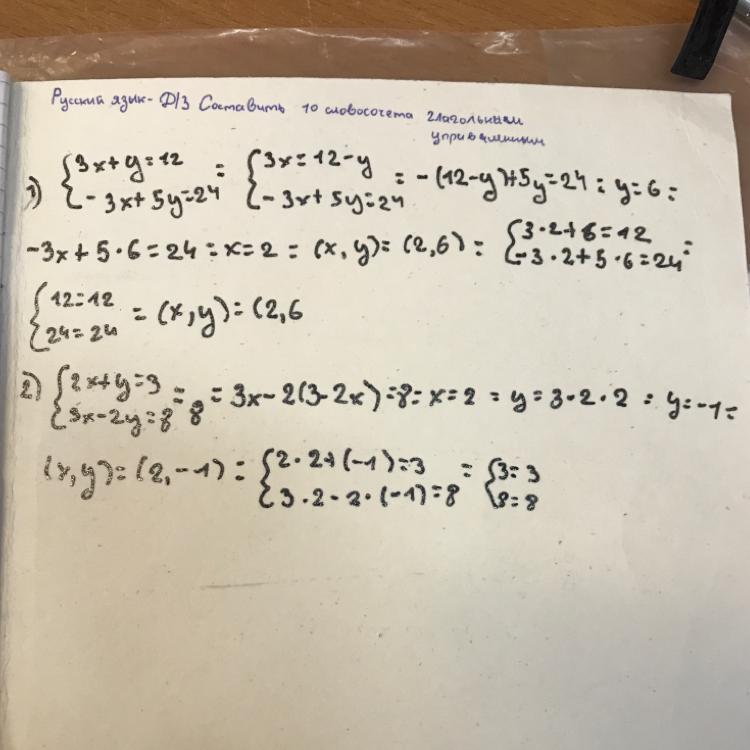 Русский язык - Д/З Составить 10 словосочета глагольным
управлением
1) {3x+y=12 {-3x+5y=24 = {3x=12-y {-3x+5y=24 = -(12-y)+5y=24 = y=6 =
-3x+5·6=24 = x=2 = (x,y)=(2,6) = {3·2+6=12 {-3·2+5·6=24 =
{12=12 {24=24 = (x,y)=(2,6
2) {2x+y=3 {3x-2y=8 = 8 = 3x-2(3-2x)=8 = x=2 = y=3·2·2 = y=-1 =
(x,y)=(2,-1) = {2·2+(-1)=3 {3·2-2·(-1)=8 = {3=3 {8=8